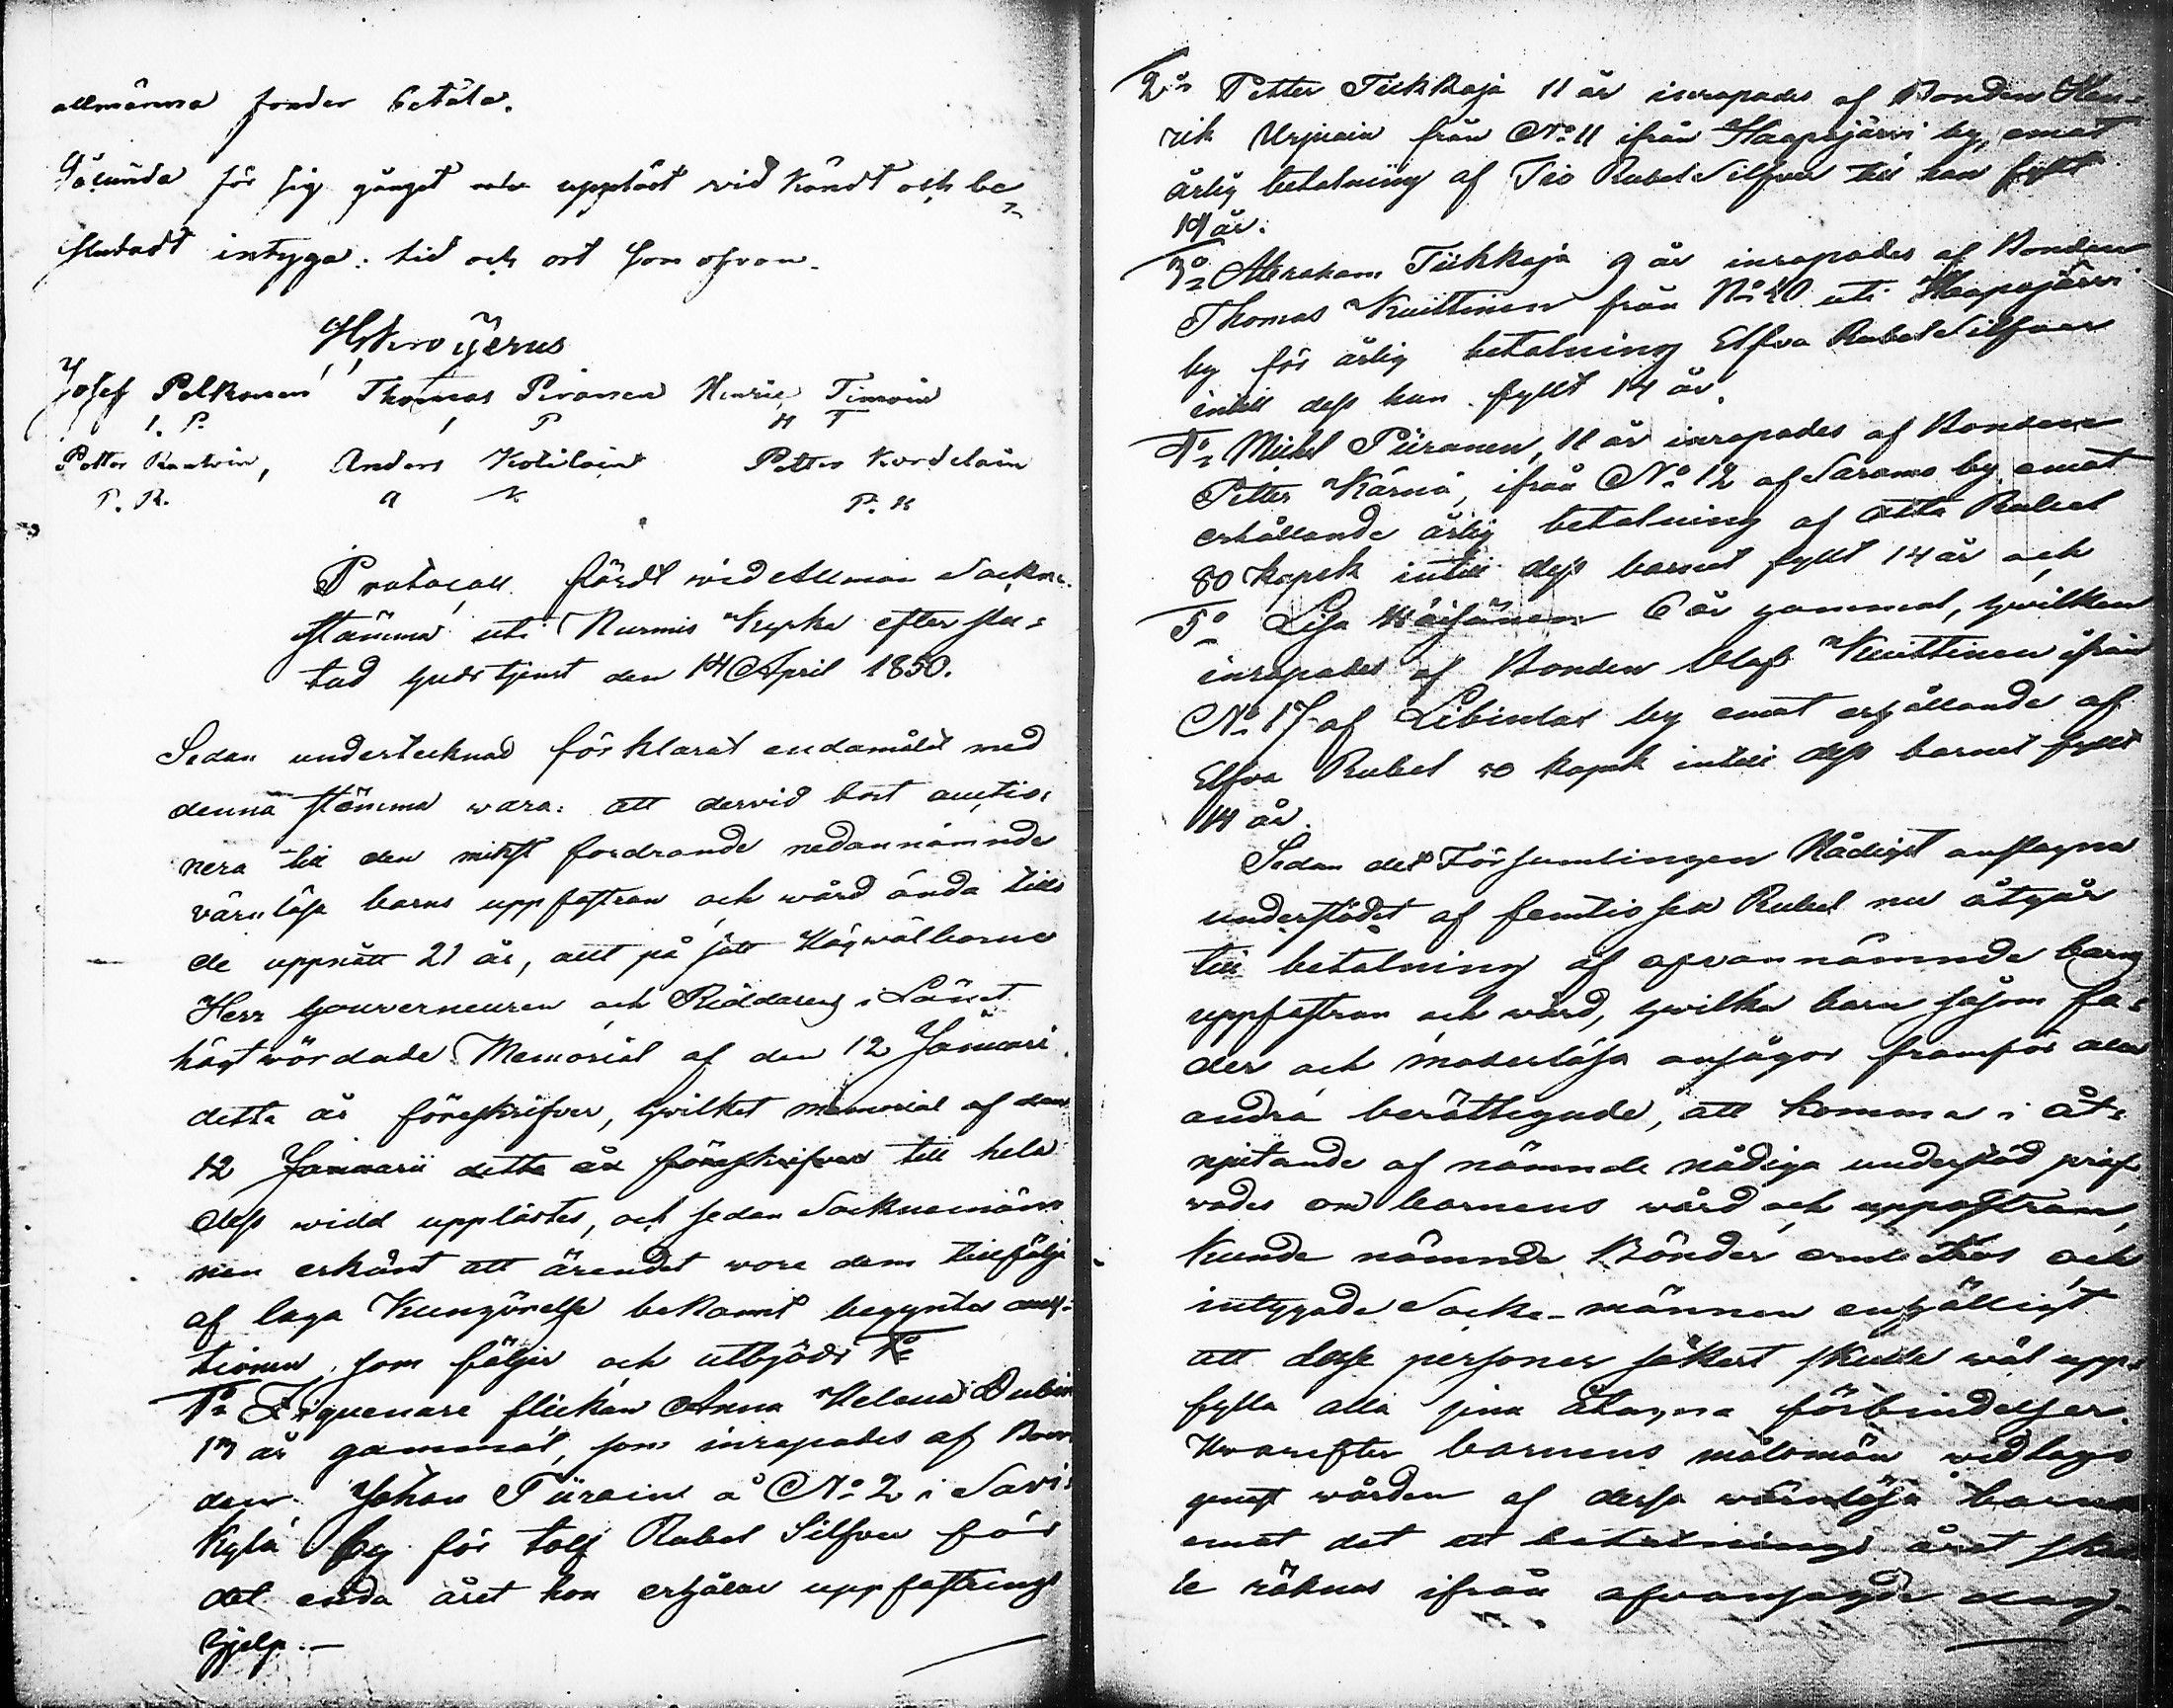 allmänna fonder betala.
Sålunda för sig gånget vara uppläst vid kändt och be-
slutadt intyga: tid och ort som ofvan.
Josef Pelkonen Thomas Pironen Henric Timoin
I. P. T P H T
Petter Rautoin, Anders Kotilain Petter Kordelain
P. R. A K P. K
Protocoll fördt wid Allmän Sockne-
stämma uti Nurmis Kyrka efter slu-
tad gudstjenst den 14 April 1850.
Sedan undertecknad förklarat ändamålet med
denna stämma wara: att dervid bort auctio-
nera till den minst fordrande nedannämnde
värnlösa barns uppfostran och wård ända tills
de uppnått 21 år, allt på sätt Högwälborne
Herr Gouverneuren och Riddaren i Länet
högtwördade Memorial af den 12 Januari
detta år föreskrifver, hvilket memorial af den
12 Januarii detta år föreskrifver till hela
dess widd upplästes, och sedan Socknemän-
nen erkänt att ärendet wore dem tillfölje
af laga Kungörelse bekant begyntes auc-
tionen som följer och utbjöds 1o
1o Ziguenare flickan Anna Helena Dubin
13 år gammal, som inropades af Bon
den Johan Piirain å No 2 i Savi-
kylä by för tolf Rubel Silfver för
det enda året hon erhåller uppfostrings
hjelp.—
2o Petter Tiikkaja 11 år inropades af Bonden Hen-
rik Urpiain från No 11 ifrån Haapajärvi by, emot
årlig betalning af Tio Rubel Silfver till han fyllt
14 år.
3o Abraham Tiikkaja 9 år inropades af Bonden
Thomas Kuittinen från No 20 uti Haapajärvi
by för årlig betalning Elfva Rubel Silfver
intill dess han fyllt 14 år.
4o Mickel Piironen, 11 år inropades af Bonden
Petter Kärnä, ifrån No 12 af Saramo by emot
erhållande årlig betalning af åtta Rubel
80 kopek intill dess barnet fyllt 14 år och
5o Lisa Häikänen 6 år gammal, hvilken
inropades af Bonden Olof Kuittinen ifrån
No 17 af Lipinlax by emot erhållande af
Elfva Rubel 50 kopek intill dess barnet fyllt
14 år.
Sedan det Församlingen Nådigst anslagna
understödet af femtio sex Rubel nu åtgår
till betalning af ofvannämnde barns
uppfostran och wård, hvilka barn såsom fa-
der och moderlösa ansågos framför alla
andra berättigade, att komma i åt-
njutande af nämnde nådiga understöd pröf-
vades om barnens wård och uppfostran,
kunde nämnde Bönder anlitas och
intygade Socke-männen enhälligt
att desse personer säkert skulle wäl upp-
fylla alla sina åtagna förbindelser.
Hvarefter barnens målsmän widtago
genast wården af dessa wärnlösa barn
emot det att betalnings året skul
le räknas ifrån ofvansagde dag.